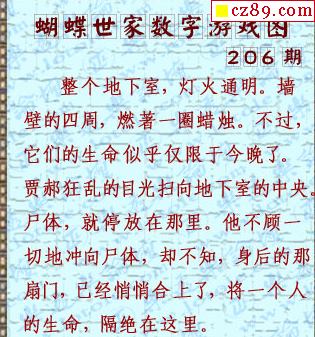 cz89.com
蝴蝶世家数字游戏图
206期
整个地下室，灯火通明。墙
壁的四周，燃著一圈蜡烛。不过，
它们的生命似乎仅限于今晚了。
贾郝狂乱的目光扫向地下室的中央。
尸体，就停放在那里。他不顾一
切地冲向尸体，却不知，身后的那
扇门，已经悄悄合上了，将一个人
的生命，隔绝在这里。